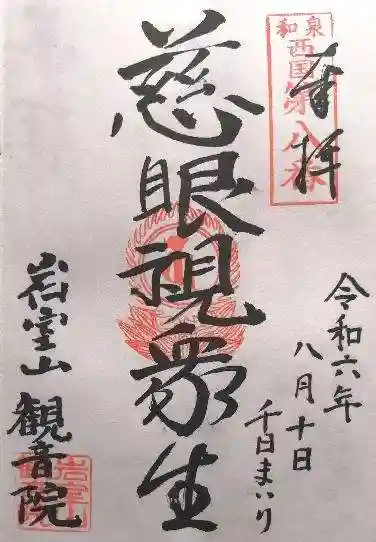 和泉
西国第八番
奉拝
令和六年
八月十日
千日まいり
慈眼視衆生
岩室山
観音院